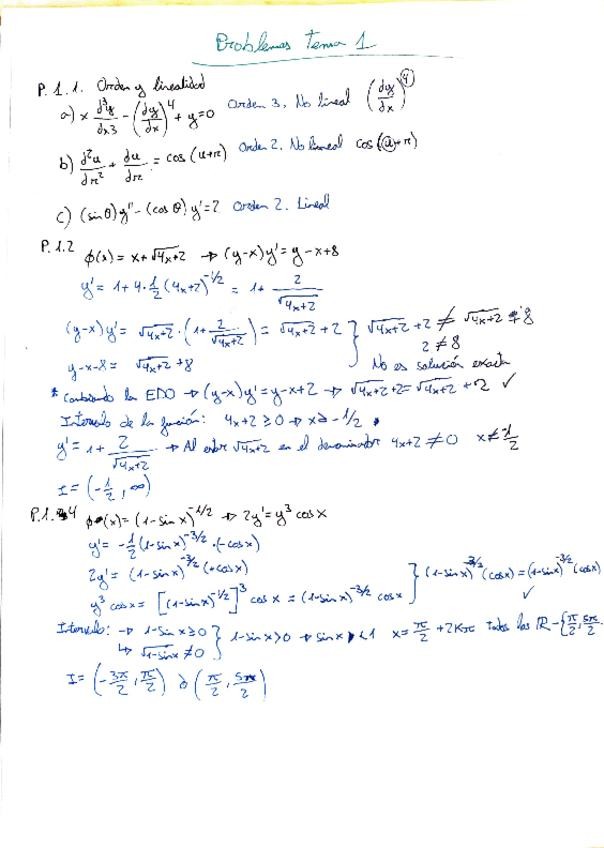 Problemas Tema 1
P.1.1. Orden y linealidad
a) x d³y/dx3 - (dy/dx)⁴ + y = 0 Orden 3. No lineal (dy/dx)⁴
b) d²u/dr² + du/dr = cos (u+r) Orden 2. No lineal cos(u+r)
c) (sin θ) y'' - (cos θ) y' = 2 Orden 2. Lineal
P.1.2 ϕ(x) = x + √4x+2 → (y-x)y' = y-x+8
y' = 1 + 4·1/2 (4x+2)^-1/2 = 1 + 2/√4x+2
(y-x)y' = √4x+2 · (1 + 2/√4x+2) = √4x+2 + 2 } √4x+2 + 2 ≠ √4x+2 + 8
2 ≠ 8
y-x-8 = √4x+2 + 8
No es solución exacta
* Cambiando la EDO → (y-x)y' = y-x+2 → √4x+2 + 2 = √4x+2 + 2 ✓
Intervalo de la función: 4x+2 ≥ 0 → x ≥ -1/2
y' = 1 + 2/√4x+2 → Al estar √4x+2 en el denominador 4x+2 ≠ 0 x ≠ -1/2
I = (-1/2, ∞)
P.1.4 ϕ(x) = (1-sin x)^-1/2 → 2y' = y³ cos x
y' = -1/2 (1-sin x)^-3/2 · (-cos x)
2y' = (1-sin x)^-3/2 (+cos x)
y³ cos x = [(1-sin x)^-1/2]³ cos x = (1-sin x)^-3/2 cos x } (1-sin x)^-3/2 (cos x) = (1-sin x)^-3/2 (cos x)
✓
Intervalo: → 1-sin x ≥ 0
↳ √1-sin x ≠ 0 } 1-sin x > 0 → sin x < 1 x = π/2 + 2kπ todos los ℝ - {π/2, 5π/2
I = (-3π/2, π/2) ò (π/2, 5π/2)